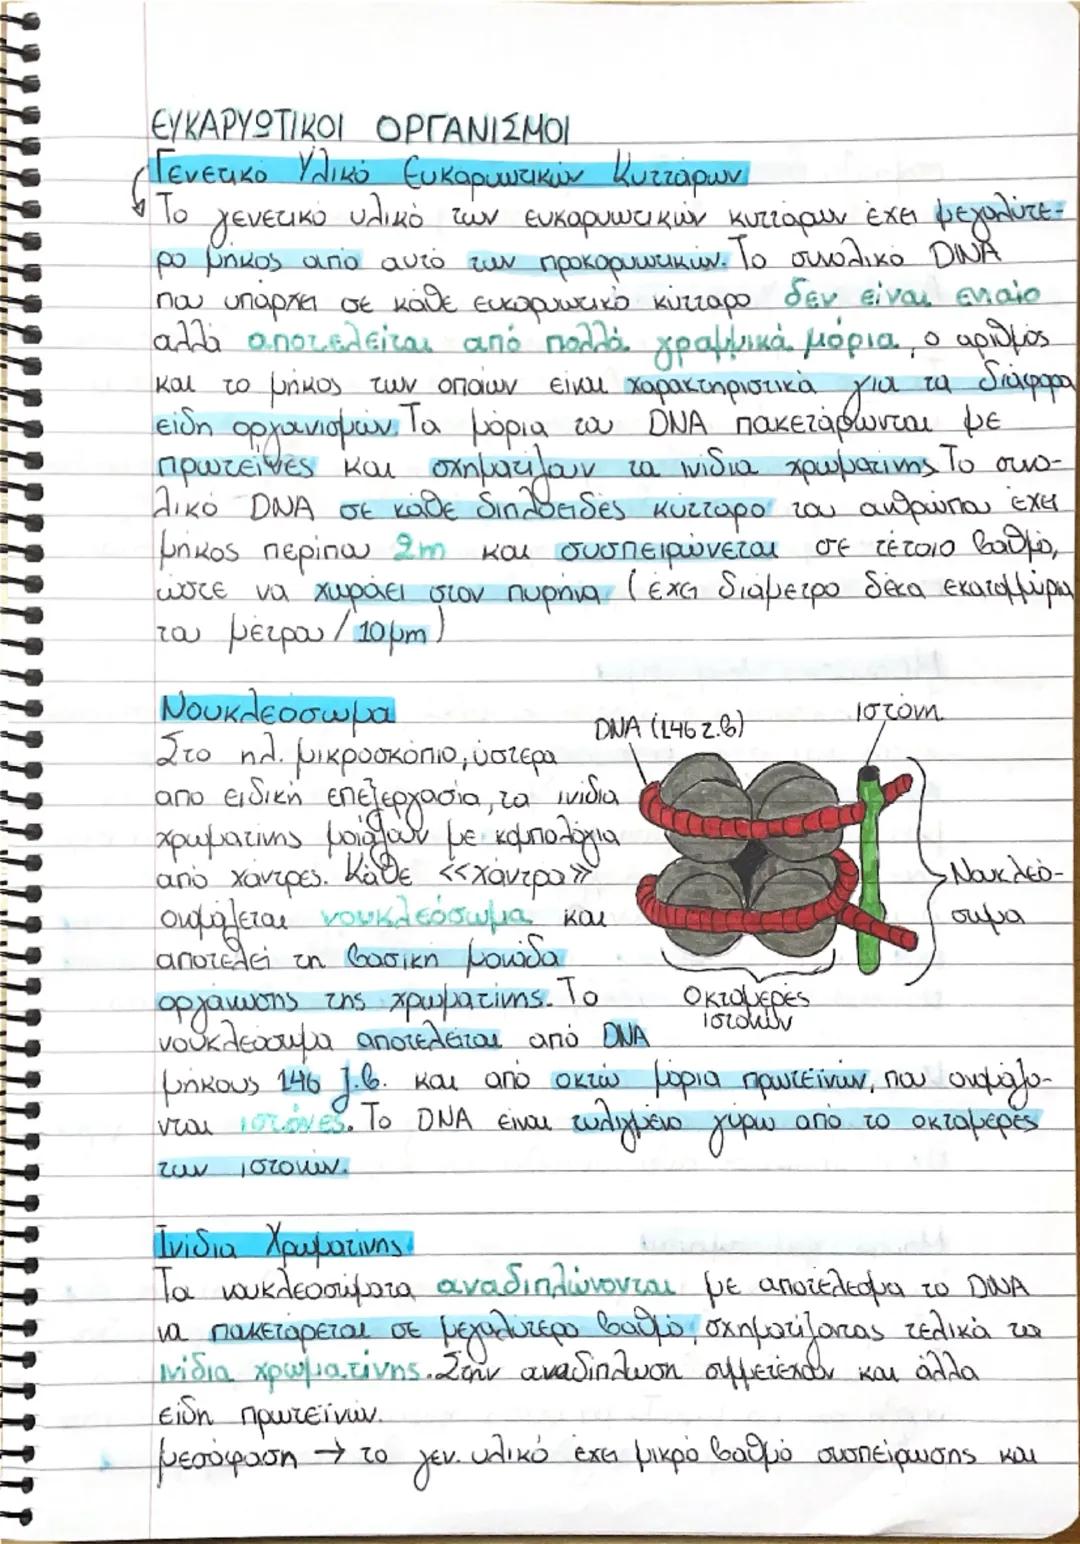 ΕΥΚΑΡΥΩΤΙΚΟΙ ΟΡΓΑΝΙΣΜΟΙ
Γενετικό Υλικό Ευκαρυωτικών Κυττάρων
Το γενετικό υλικό των ευκαρυωτικών κυττάρων έχει μεγαλύτε-
ρο μήκος από αυτό των προκαρυωτικών. Το συνολικό DNA
που υπάρχει σε κάθε ευκαρυωτικό κύτταρο δεν είναι ενιαίο
αλλά αποτελείται από πολλά γραμμικά μόρια, ο αριθμός
και το μήκος των οποίων είναι χαρακτηριστικά για τα διάφορα
είδη οργανισμών. Τα μόρια του DNA πακετάρωνται με
πρωτεΐνες και σχηματίζουν τα ινίδια χρωματίνης. Το συνο-
λικό DNA σε κάθε διπλοειδές κύτταρο του ανθρώπου έχει
μήκος περίπου 2m και συσπειρώνεται σε τέτοιο βαθμό,
ώστε να χωράει στον πυρήνα (έχει διάμετρο δέκα εκατομμύρια
του μέτρου / 10μm)
Νουκλεόσωμα
Στο ηλ. μικροσκόπιο, ύστερα
από ειδική επεξεργασία, τα ινίδια
χρωματίνης μοιάζουν με κομπολόγια
από χάντρες. Κάθε <<χάντρα>>
ονομάζεται νουκλεόσωμα και
αποτελεί τη βασική μονάδα
οργάνωσης της χρωματίνης. Το
νουκλεόσωμα αποτελείται από DNA
μήκους 146 ζ.β. και από οκτώ μόρια πρωτεϊνών, που ονομάζο-
νται ιστόνες. Το DNA είναι τυλιγμένο γύρω από το οκταμερές
των ιστονών.
DNA (146 ζ.β)
Ιστόνη
Νουκλεό-
σωμα
Οκταμερές
ιστονών
Ινίδια Χρωματίνης
Τα νουκλεοσώματα αναδιπλώνονται με αποτέλεσμα το DNA
να πακετάρεται σε μεγαλύτερο βαθμό, σχηματίζοντας τελικά τα
ινίδια χρωματίνης. Στην αναδίπλωση συμμετέχουν και άλλα
είδη πρωτεϊνών.
μεσόφαση → το γεν. υλικό έχει μικρό βαθμό συσπείρωσης και